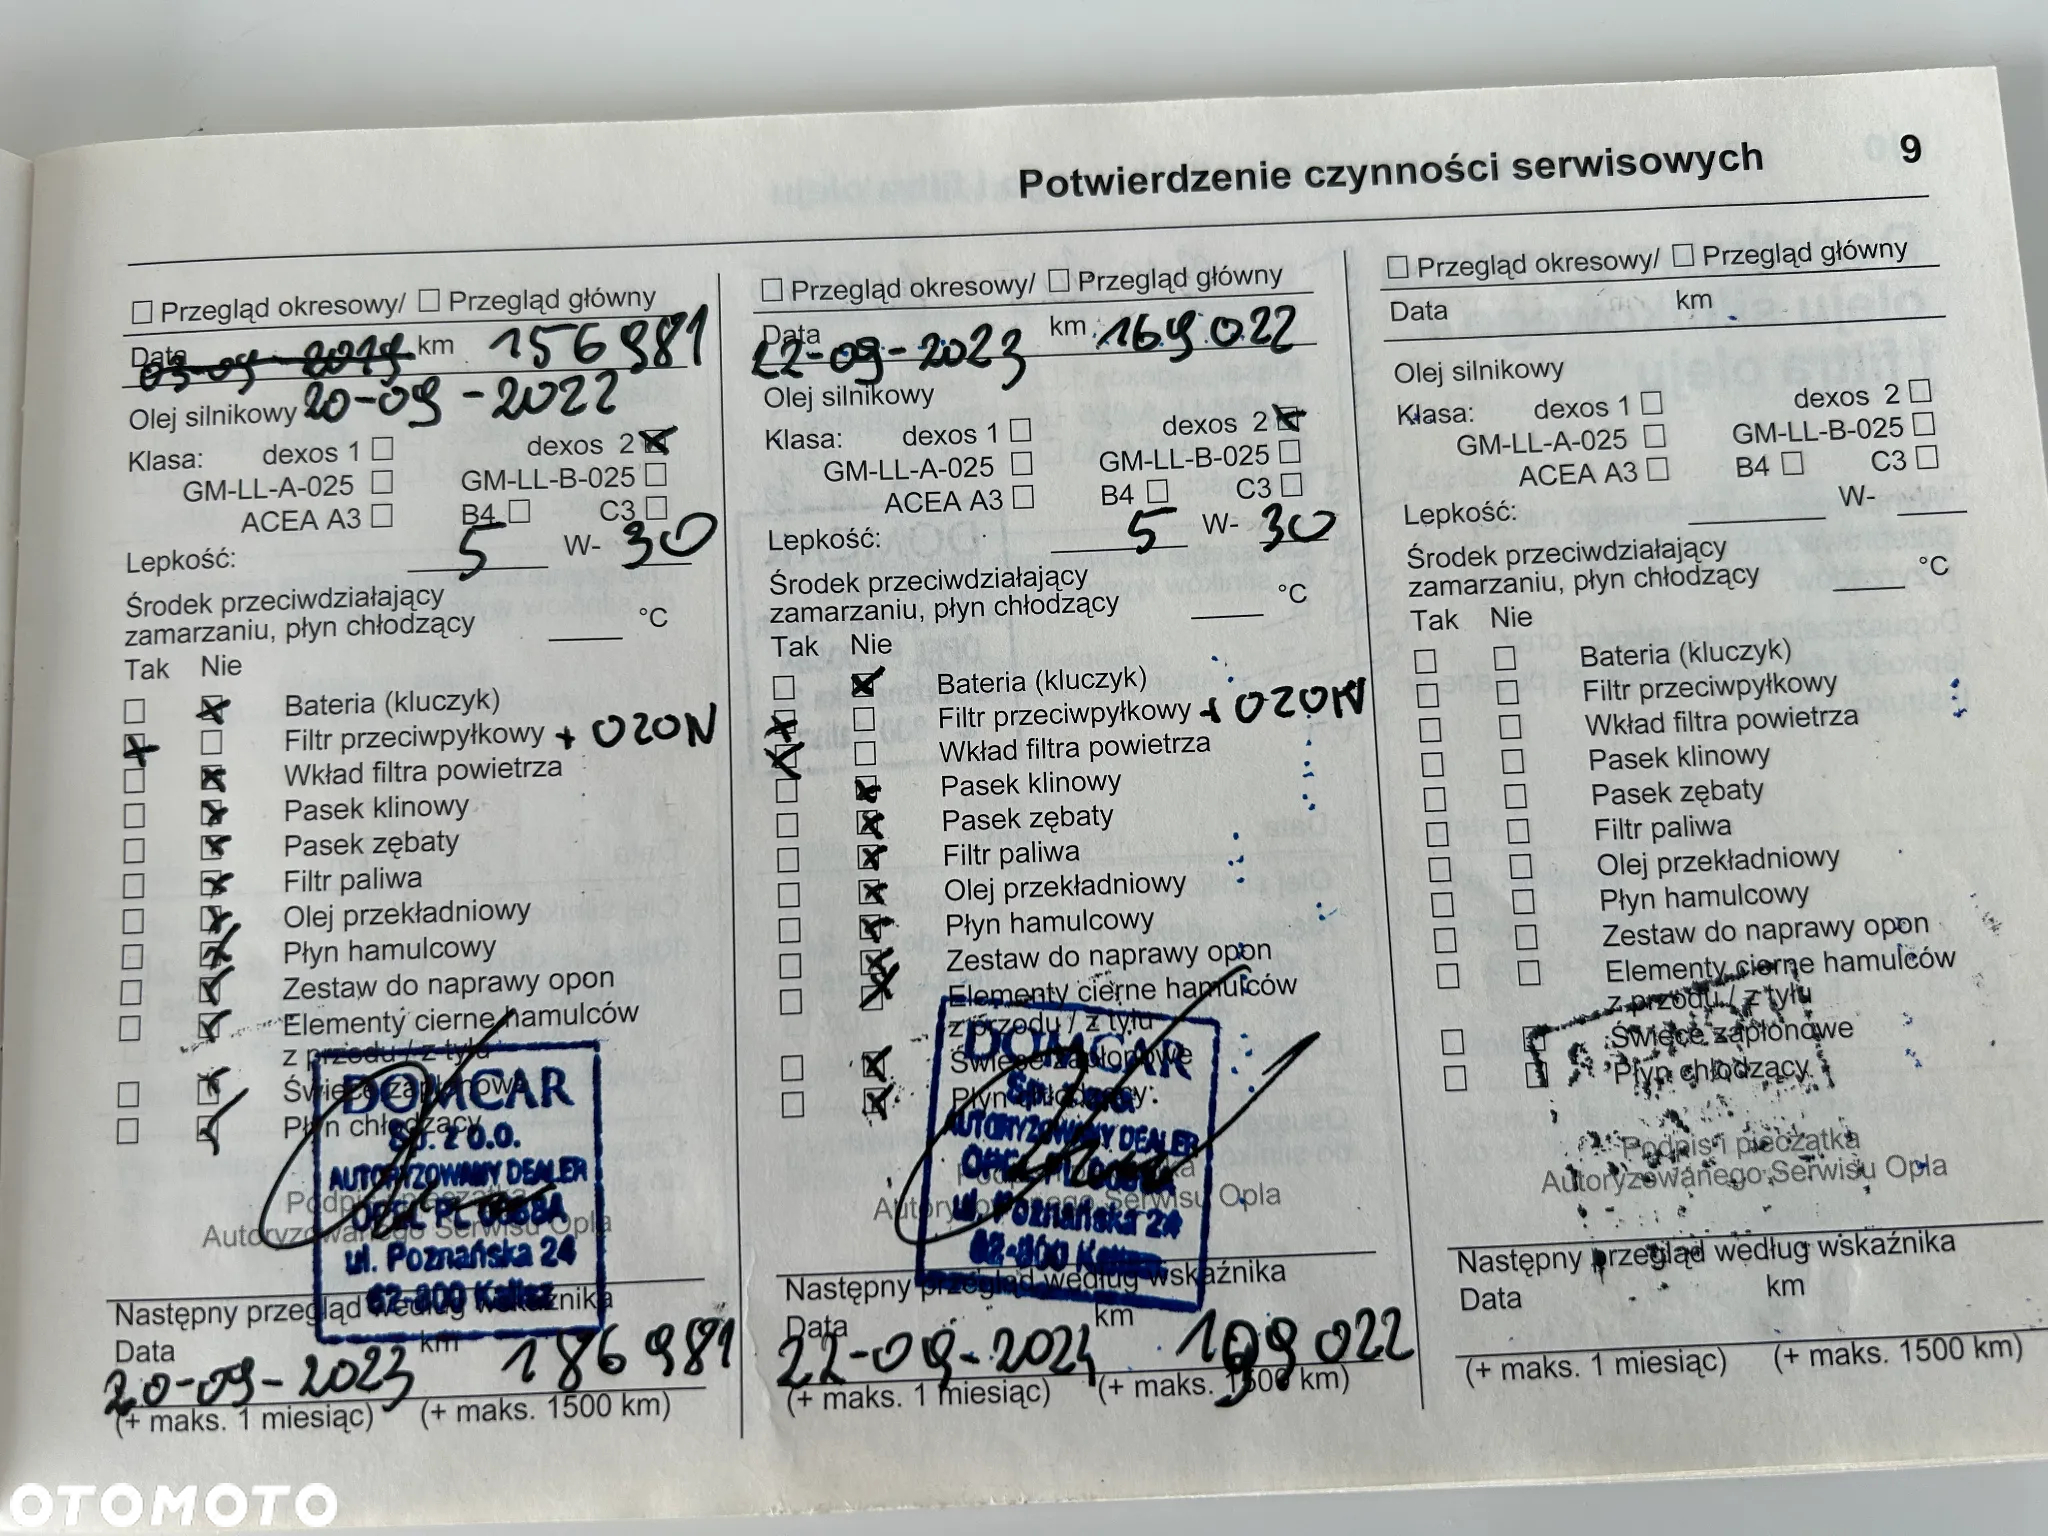 Potwierdzenie czynności serwisowych 9
☐ Przegląd okresowy/ ☐ Przegląd główny
Data 03-09-2019 km 156981
Olej silnikowy 20-09-2022
Klasa: dexos 1 ☐ dexos 2 ☒
GM-LL-A-025 ☐ GM-LL-B-025 ☐
ACEA A3 ☐ B4 ☐ C3 ☐
Lepkość: 5 W- 30
Środek przeciwdziałający
zamarzaniu, płyn chłodzący ____ °C
Tak Nie
☐ ☒ Bateria (kluczyk)
☒ ☐ Filtr przeciwpyłkowy + OZON
☐ ☒ Wkład filtra powietrza
☐ ☒ Pasek klinowy
☐ ☒ Pasek zębaty
☐ ☒ Filtr paliwa
☐ ☒ Olej przekładniowy
☐ ☒ Płyn hamulcowy
☐ ☒ Zestaw do naprawy opon
☐ ☒ Elementy cierne hamulców
z przodu / z tyłu
☐ ☒ Świece zapłonowe
☐ ☒ Płyn chłodzący
DOMCAR
Sp. z o.o.
AUTORYZOWANY DEALER
OPEL PL 0088A
ul. Poznańska 24
62-800 Kalisz
Podpis i pieczątka
Autoryzowanego Serwisu Opla
Następny przegląd według wskaźnika
Data km
20-09-2023 186981
(+ maks. 1 miesiąc) (+ maks. 1500 km)
☐ Przegląd okresowy/ ☐ Przegląd główny
Data 22-09-2023 km 169022
Olej silnikowy
Klasa: dexos 1 ☐ dexos 2 ☒
GM-LL-A-025 ☐ GM-LL-B-025 ☐
ACEA A3 ☐ B4 ☐ C3 ☐
Lepkość: 5 W- 30
Środek przeciwdziałający
zamarzaniu, płyn chłodzący ____ °C
Tak Nie
☐ ☒ Bateria (kluczyk)
☒ ☐ Filtr przeciwpyłkowy + OZON
☒ ☐ Wkład filtra powietrza
☐ ☒ Pasek klinowy
☐ ☒ Pasek zębaty
☐ ☒ Filtr paliwa
☐ ☒ Olej przekładniowy
☐ ☒ Płyn hamulcowy
☐ ☒ Zestaw do naprawy opon
☐ ☒ Elementy cierne hamulców
z przodu / z tyłu
☐ ☒ Świece zapłonowe
☐ ☒ Płyn chłodzący
DOMCAR
Sp. z o.o.
AUTORYZOWANY DEALER
OPEL PL 0088A
ul. Poznańska 24
62-800 Kalisz
Podpis i pieczątka
Autoryzowanego Serwisu Opla
Następny przegląd według wskaźnika
Data km
22-09-2024 199022
(+ maks. 1 miesiąc) (+ maks. 1500 km)
☐ Przegląd okresowy/ ☐ Przegląd główny
Data km
Olej silnikowy
Klasa: dexos 1 ☐ dexos 2 ☐
GM-LL-A-025 ☐ GM-LL-B-025 ☐
ACEA A3 ☐ B4 ☐ C3 ☐
Lepkość: ____ W- ____
Środek przeciwdziałający
zamarzaniu, płyn chłodzący ____ °C
Tak Nie
☐ ☐ Bateria (kluczyk)
☐ ☐ Filtr przeciwpyłkowy
☐ ☐ Wkład filtra powietrza
☐ ☐ Pasek klinowy
☐ ☐ Pasek zębaty
☐ ☐ Filtr paliwa
☐ ☐ Olej przekładniowy
☐ ☐ Płyn hamulcowy
☐ ☐ Zestaw do naprawy opon
☐ ☐ Elementy cierne hamulców
z przodu / z tyłu
☐ ☐ Świece zapłonowe
☐ ☐ Płyn chłodzący
Podpis i pieczątka
Autoryzowanego Serwisu Opla
Następny przegląd według wskaźnika
Data km
(+ maks. 1 miesiąc) (+ maks. 1500 km)
OTOMOTO